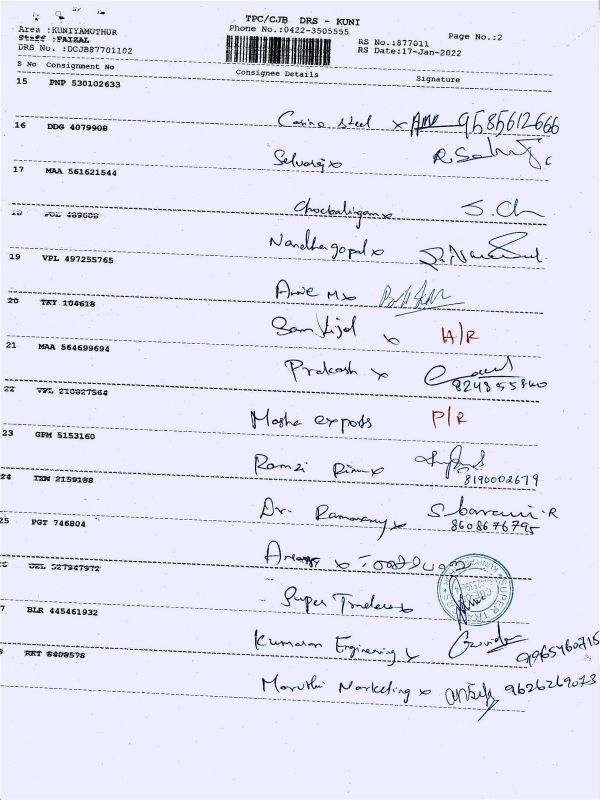 TPC/CJB DRS - KUNI
Area :KUNIYAMUTHUR Phone No.:0422-3505555 Page No.:2
Staff :FAIZAL RS No.:877011
DRS No. :DCJB87701102 RS Date:17-Jan-2022
S No Consignment No Consignee Details Signature
15 PNP 530102633
Casino steel x 9585612666
16 DDG 4079908
Selvaraj x
17 MAA 561621544
Chockalingam x S. Ch
18 489608
Nandhagopal x
19 VPL 497255765
Anie M x
20 TKY 104618
Sam x H/R
21 MAA 564699694
Prakash x
22 VPL 210827564
Masha exports P/R
23 GPM 5153160
Ramzi x
8190002679
24 2159188
Dr. Ramasamy x
8608676795
25 PGT 746804
x
527947972
Super Traders x
BLR 445461932
Kumaran Engineering x 9965460715
RKT 6408578
Maruthi Marketing x 9626269073